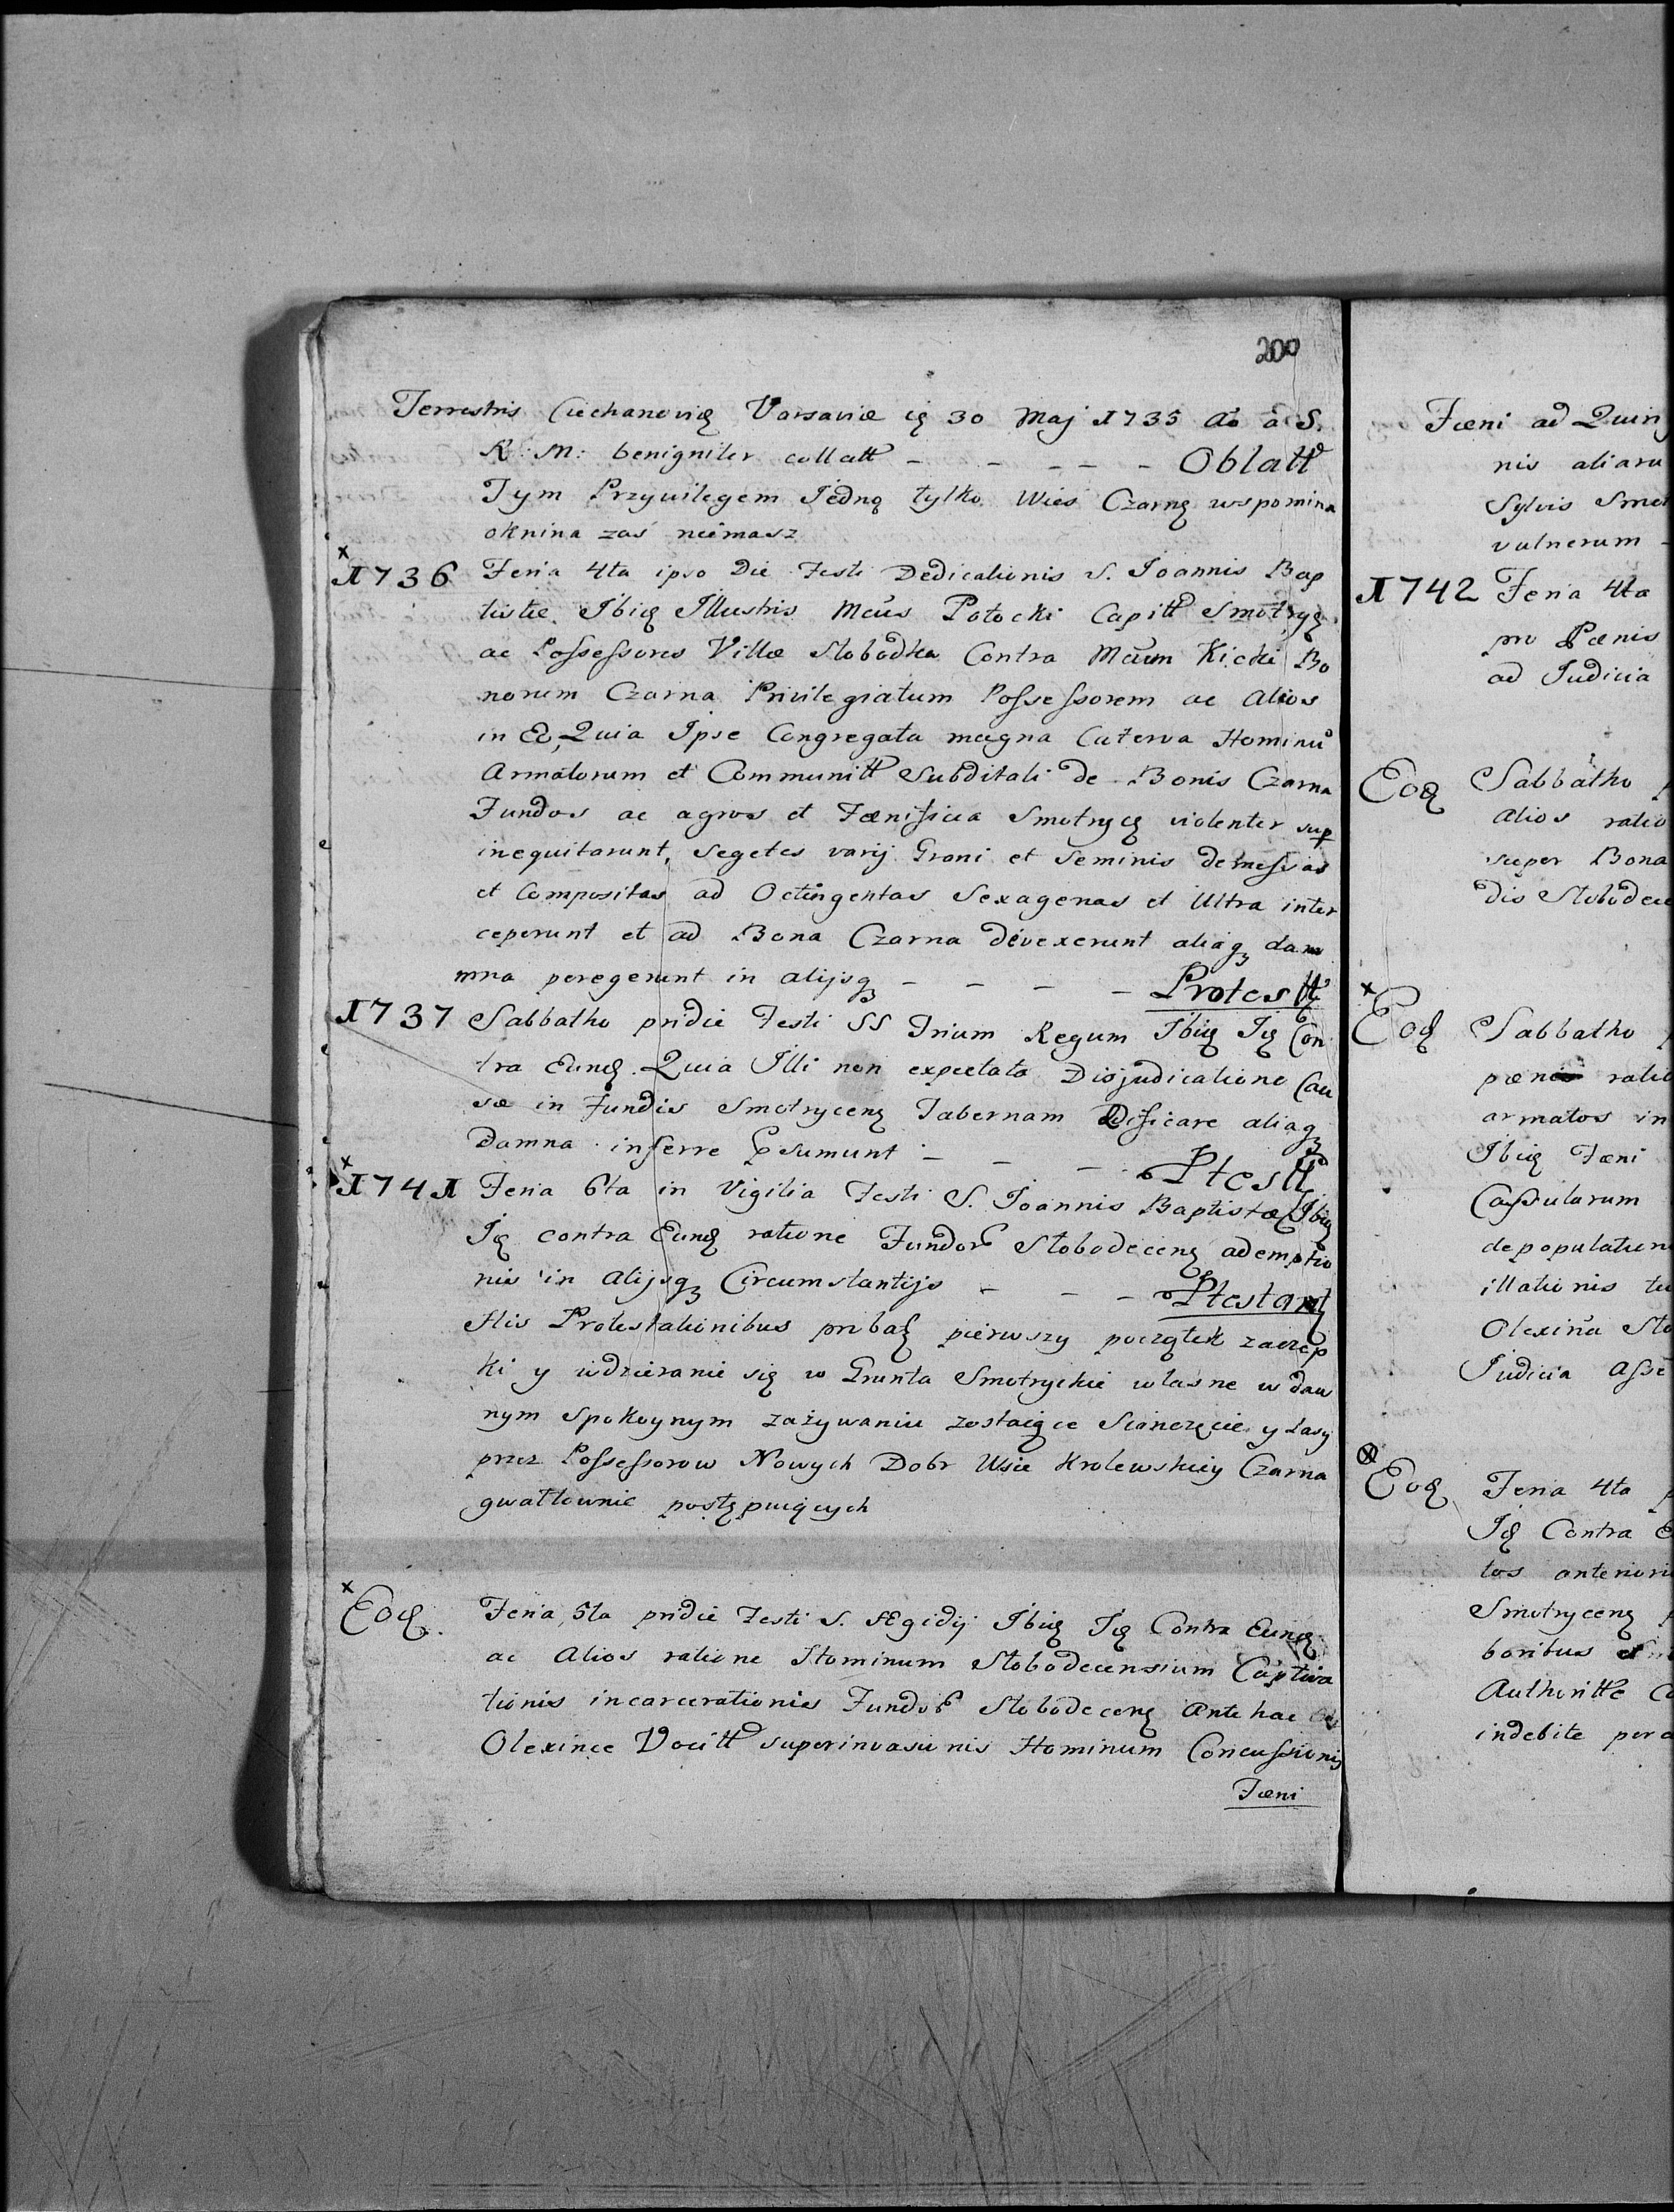 200
Terrestris Ciechanoviæ Varsaviæ 30 Maj 1735 Ao a S.
R: M: benigniter collatt - - - - - Oblatt
Tym Przywilegem Jedną tylko Wies Czarnę wspomina
oknina zaś niemasz
x
1736 Feria 4ta ipso Die Festi Dedicationis S. Joannis Bap
tistæ Ibiq Illustris Mcus Potocki Capitt Smotryc
ac Possessores Villæ Slobodka Contra Mcum Kicki Bo
norum Czarna Privilegiatum Possessorem ac Alios
in Eo, Quia Ipse Congregata magna Caterva Hominu
Armatorum et Communitt Subditali de Bonis Czarna
Fundos ac agros et Fænificia Smotryc violenter sup
inequitarunt, Segetes varij Grani et Seminis demessas
et Compositas ad Octingentas Sexagenas et Ultra inter
ceperunt et ad Bona Czarna devexerunt aliaq dam
mna peregerunt in alijsq - - - - Protestt
1737 Sabbatho pridie Festi SS Trium Regum Ibiq Iq Con
tra Eunq. Quia Illi non expectata Disjudicatione Cau
sæ in Fundis Smotrycen Tabernam Ædificare aliaq
Damna inferre Psumunt - - - Ptestt
x
1741 Feria 6ta in Vigilia Festi S. Joannis Baptistæ Ibiq
Iq contra Eunq ratione Fundor Slobodecen ademptio
nis in alijsq Circumstantijs - - - Ptestant
His Protestationibus probat pierwszy początek zaczep
ki y wdzieranie się w Grunta Smotryckie własne w daw
nym Spokoynym zażywaniu zostaiące Scianozęcie y Lasy
przez Possessorow Nowych Dobr Wsie Krolewskiey Czarna
gwałtownie postępuiących
x
Eoq. Feria 5ta pridie Festi S. Ægidij Ibiq Iq Contra Eunq
ac Alios ratione Hominum Slobodecensium Captiva
tionis incarcerationis Fundor Slobodecen Antehac
Olexince Vocitt superinvasionis Hominum Concussionis
Fæni
Fæni ad Quin
nis aliaru
Sylvis Smo
vulnerum -
1742 Feria 4ta
pro Pænis
ad Judicia
Eoq Sabbatho
alios ratio
super Bona
dis Slobodec
x
Eoq Sabbatho
pæn ratio
armatos in
Ibiq Fæni
Capsularum
depopulation
illationis
Olexina Slo
Judicia Asse
x
Eoq Feria 4ta
Iq Contra E
tos anterior
Smotrycen
boribus
Authoritte
indebite per